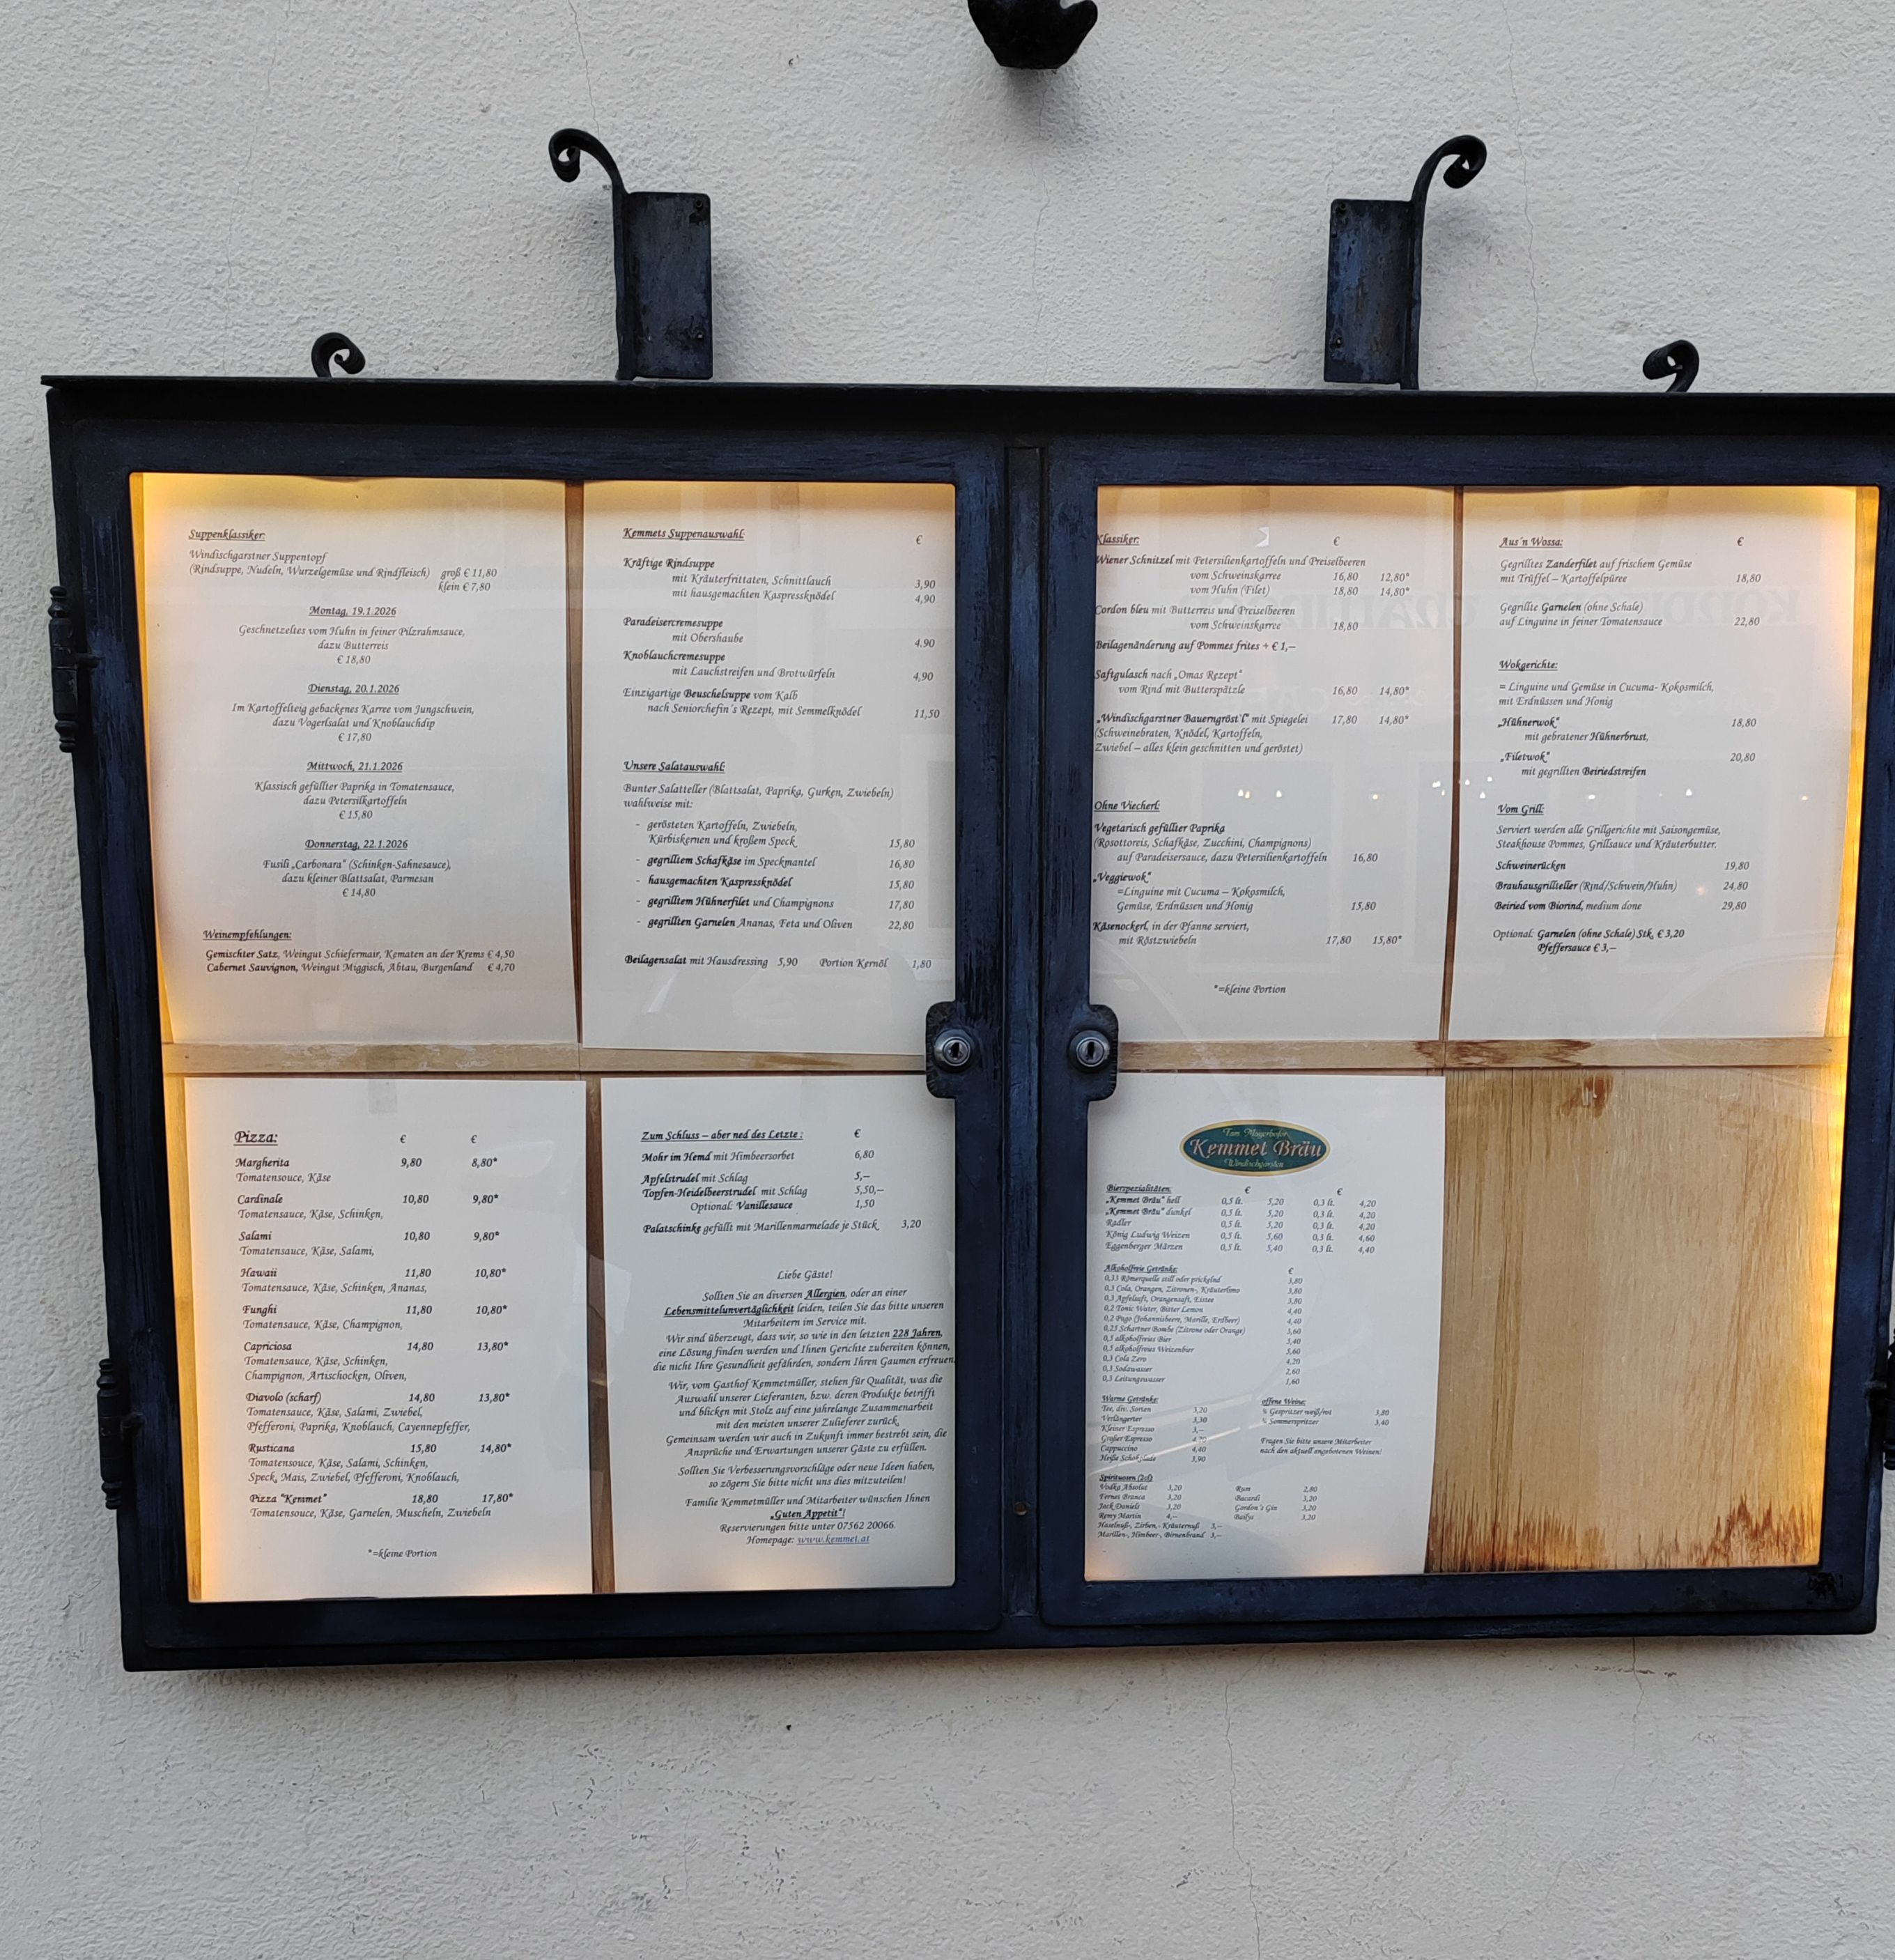 Suppenklassiker:
Windischgarstner Suppentopf
(Rindsuppe, Nudeln, Wurzelgemüse und Rindfleisch) groß € 11,80
klein € 7,80
Montag, 19.1.2026
Geschnetzeltes vom Huhn in feiner Pilzrahmsauce,
dazu Butterreis
€ 18,80
Dienstag, 20.1.2026
Im Kartoffelteig gebackenes Karree vom Jungschwein,
dazu Vogerlsalat und Knoblauchdip
€ 17,80
Mittwoch, 21.1.2026
Klassisch gefüllter Paprika in Tomatensauce,
dazu Petersilkartoffeln
€ 15,80
Donnerstag, 22.1.2026
Fusili „Carbonara“ (Schinken-Sahnesauce),
dazu kleiner Blattsalat, Parmesan
€ 14,80
Weinempfehlungen:
Gemischter Satz, Weingut Schiefermair, Kematen an der Krems € 4,50
Cabernet Sauvignon, Weingut Miggisch, Abtau, Burgenland € 4,70
Kemmets Suppenauswahl: €
Kräftige Rindsuppe
mit Kräuterfrittaten, Schnittlauch 3,90
mit hausgemachten Kaspressknödel 4,90
Paradeisercremesuppe
mit Obershaube 4.90
Knoblauchcremesuppe
mit Lauchstreifen und Brotwürfeln 4,90
Einzigartige Beuschelsuppe vom Kalb
nach Seniorchefin´s Rezept, mit Semmelknödel 11,50
Unsere Salatauswahl:
Bunter Salatteller (Blattsalat, Paprika, Gurken, Zwiebeln)
wahlweise mit:
- gerösteten Kartoffeln, Zwiebeln,
Kürbiskernen und kroßem Speck 15,80
- gegrilltem Schafkäse im Speckmantel 16,80
- hausgemachten Kaspressknödel 15,80
- gegrilltem Hühnerfilet und Champignons 17,80
- gegrillten Garnelen Ananas, Feta und Oliven 22,80
Beilagensalat mit Hausdressing 5,90 Portion Kernöl 1,80
Klassiker: €
Wiener Schnitzel mit Petersilienkartoffeln und Preiselbeeren
vom Schweinskarree 16,80 12,80*
vom Huhn (Filet) 18,80 14,80*
Cordon bleu mit Butterreis und Preiselbeeren
vom Schweinskarree 18,80
Beilagenänderung auf Pommes frites + € 1,—
Saftgulasch nach „Omas Rezept“
vom Rind mit Butterspätzle 16,80 14,80*
„Windischgarstner Bauerngröst´l“ mit Spiegelei 17,80 14,80*
(Schweinebraten, Knödel, Kartoffeln,
Zwiebel – alles klein geschnitten und geröstet)
Ohne Viecherl:
Vegetarisch gefüllter Paprika
(Rosottoreis, Schafkäse, Zucchini, Champignons)
auf Paradeisersauce, dazu Petersilienkartoffeln 16,80
„Veggiewok“
=Linguine mit Cucuma – Kokosmilch,
Gemüse, Erdnüssen und Honig 15,80
Käsenockerl, in der Pfanne serviert,
mit Röstzwiebeln 17,80 15,80*
*=kleine Portion
Aus´n Wossa: €
Gegrilltes Zanderfilet auf frischem Gemüse
mit Trüffel – Kartoffelpüree 18,80
Gegrillte Garnelen (ohne Schale)
auf Linguine in feiner Tomatensauce 22,80
Wokgerichte:
= Linguine und Gemüse in Cucuma- Kokosmilch,
mit Erdnüssen und Honig
„Hühnerwok“ 18,80
mit gebratener Hühnerbrust,
„Filetwok“ 20,80
mit gegrillten Beiriedstreifen
Vom Grill:
Serviert werden alle Grillgerichte mit Saisongemüse,
Steakhouse Pommes, Grillsauce und Kräuterbutter.
Schweinerücken 19,80
Brauhausgrillteller (Rind/Schwein/Huhn) 24,80
Beiried vom Biorind, medium done 29,80
Optional: Garnelen (ohne Schale) Stk. € 3,20
Pfeffersauce € 3,—
Pizza: € €
Margherita 9,80 8,80*
Tomatensouce, Käse
Cardinale 10,80 9,80*
Tomatensauce, Käse, Schinken,
Salami 10,80 9,80*
Tomatensauce, Käse, Salami,
Hawaii 11,80 10,80*
Tomatensauce, Käse, Schinken, Ananas,
Funghi 11,80 10,80*
Tomatensauce, Käse, Champignon,
Capriciosa 14,80 13,80*
Tomatensauce, Käse, Schinken,
Champignon, Artischocken, Oliven,
Diavolo (scharf) 14,80 13,80*
Tomatensauce, Käse, Salami, Zwiebel,
Pfefferoni, Paprika, Knoblauch, Cayennepfeffer,
Rusticana 15,80 14,80*
Tomatensouce, Käse, Salami, Schinken,
Speck, Mais, Zwiebel, Pfefferoni, Knoblauch,
Pizza "Kemmet" 18,80 17,80*
Tomatensouce, Käse, Garnelen, Muscheln, Zwiebeln
*=kleine Portion
Zum Schluss – aber ned des Letzte : €
Mohr im Hemd mit Himbeersorbet 6,80
Apfelstrudel mit Schlag 5,—
Topfen-Heidelbeerstrudel mit Schlag 5,50,—
Optional: Vanillesauce 1,50
Palatschinke gefüllt mit Marillenmarmelade je Stück 3,20
Liebe Gäste!
Sollten Sie an diversen Allergien, oder an einer
Lebensmittelunverträglichkeit leiden, teilen Sie das bitte unseren
Mitarbeitern im Service mit.
Wir sind überzeugt, dass wir, so wie in den letzten 228 Jahren,
eine Lösung finden werden und Ihnen Gerichte zubereiten können,
die nicht Ihre Gesundheit gefährden, sondern Ihren Gaumen erfreuen.
Wir, vom Gasthof Kemmetmüller, stehen für Qualität, was die
Auswahl unserer Lieferanten, bzw. deren Produkte betrifft
und blicken mit Stolz auf eine jahrelange Zusammenarbeit
mit den meisten unserer Zulieferer zurück.
Gemeinsam werden wir auch in Zukunft immer bestrebt sein, die
Ansprüche und Erwartungen unserer Gäste zu erfüllen.
Sollten Sie Verbesserungsvorschläge oder neue Ideen haben,
so zögern Sie bitte nicht uns dies mitzuteilen!
Familie Kemmetmüller und Mitarbeiter wünschen Ihnen
„Guten Appetit“!
Reservierungen bitte unter 07562 20066.
Homepage: www.kemmet.at
Kemmet Bräu
Windischgarsten
Bierspezialitäten: € €
„Kemmet Bräu“ hell 0,5 lt. 5,20 0,3 lt. 4,20
„Kemmet Bräu“ dunkel 0,5 lt. 5,20 0,3 lt. 4,20
Radler 0,5 lt. 5,20 0,3 lt. 4,20
König Ludwig Weizen 0,5 lt. 5,60 0,3 lt. 4,60
Eggenberger Märzen 0,5 lt. 5,40 0,3 lt. 4,40
Alkoholfreie Getränke: €
0,33 Römerquelle still oder prickelnd 3,80
0,3 Cola, Orangen, Zitronen-, Kräuterlimo 3,80
0,3 Apfelsaft, Orangensaft, Eistee 3,80
0,2 Tonic Water, Bitter Lemon 4,40
0,2 Pago (Johannisbeere, Marille, Erdbeer) 4,40
0,25 Schartner Bombe (Zitrone oder Orange) 3,60
0,5 alkoholfreies Bier 5,40
0,5 alkoholfreies Weizenbier 5,60
0,3 Cola Zero 4,20
0,3 Sodawasser 2,60
0,3 Leitungswasser 1,60
Warme Getränke:
Tee, div. Sorten 3,20
Verlängerter 3,30
Kleiner Espresso 3,—
Großer Espresso
Cappuccino 4,40
Heiße Schokolade 3,90
offene Weine:
¼ Gespritzer weiß/rot 3,80
¼ Sommerspritzer 3,40
Fragen Sie bitte unsere Mitarbeiter
nach den aktuell angebotenen Weinen!
Spirituosen (2cl):
Vodka Absolut 3,20 Rum 2,80
Fernet Branca 3,20 Bacardi 3,20
Jack Daniels 3,20 Gordon´s Gin 3,20
Remy Martin 4,— Bailys 3,20
Haselnuß-, Zirben,- Kräuternuß 3,—
Marillen-, Himbeer-, Birnenbrand 3,—